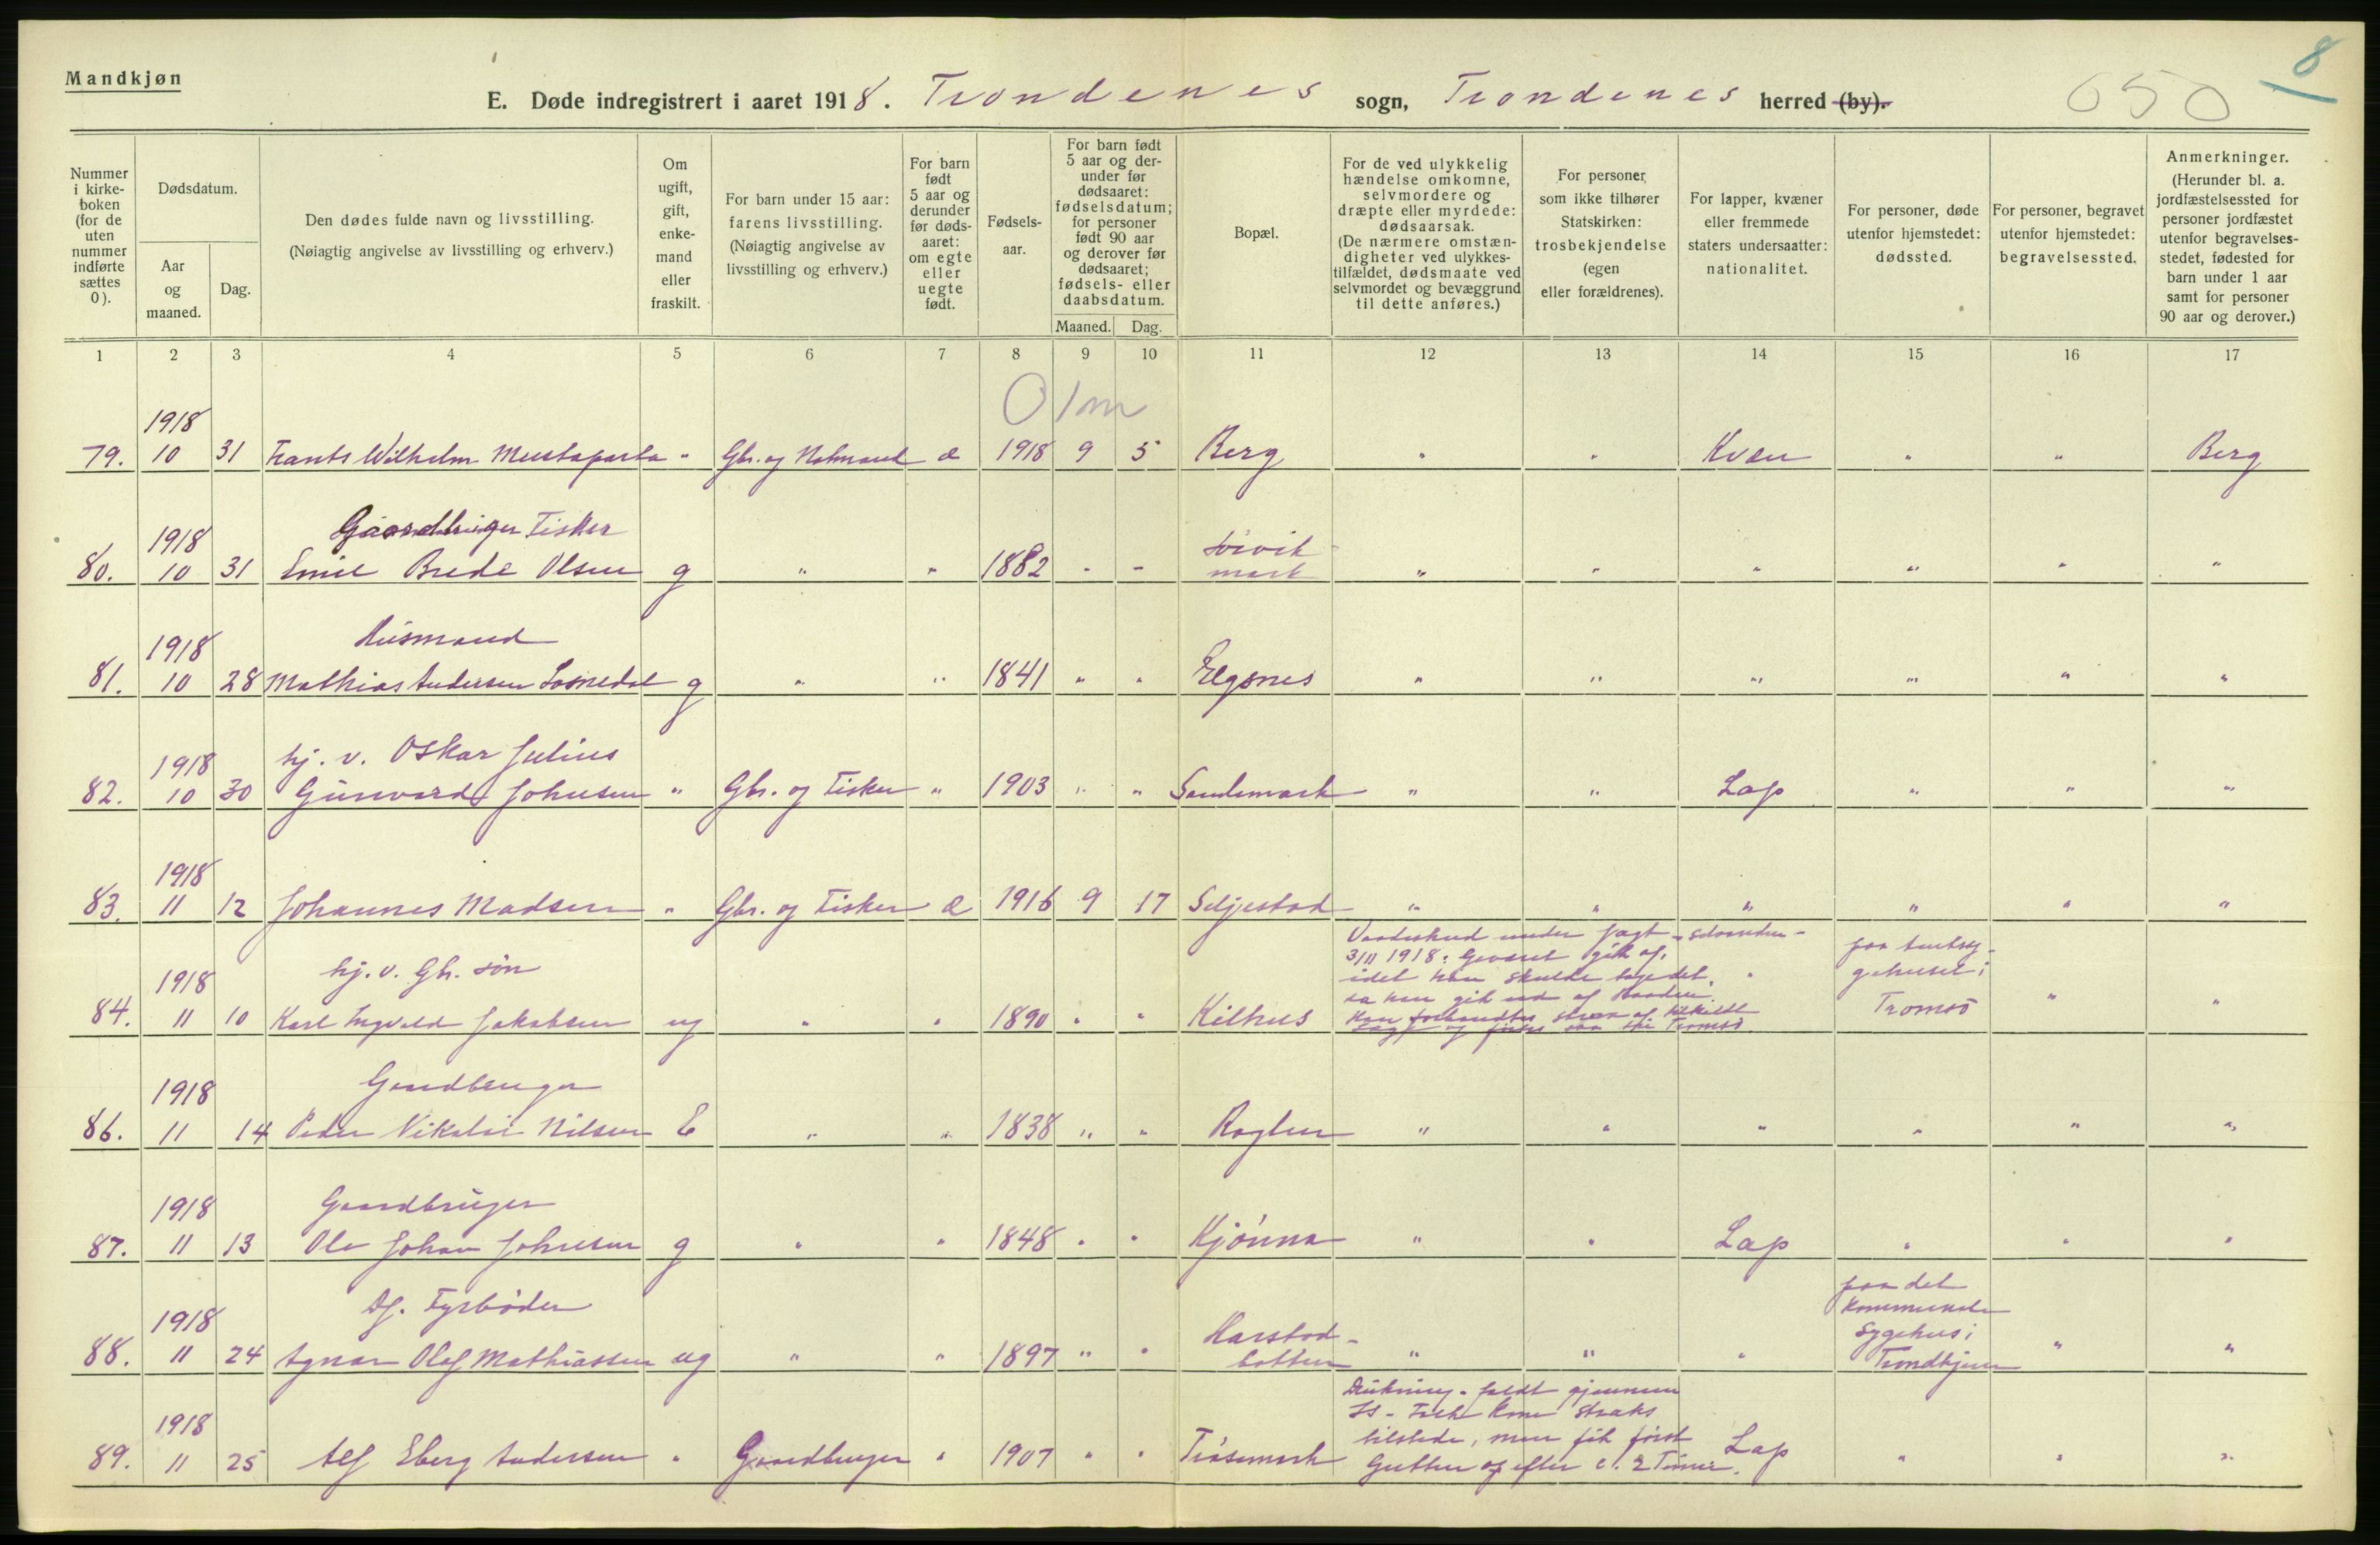 Mandkjøn
8
E. Døde indregistrert i aaret 1918. Trondenes sogn, Trondenes herred (by).
650
Nummer i kirke-boken (for de uten nummer indførte sættes 0).
Dødsdatum.
Aar og maaned.
Dag.
Den dødes fulde navn og livsstilling.
(Nøiagtig angivelse av livsstilling og erhverv.)
Om ugift, gift, enke-mand eller fraskilt.
For barn under 15 aar: farens livsstilling.
(Nøiagtig angivelse av livsstilling og erhverv.)
For barn født 5 aar og derunder før døds-aaret: om egte eller uegte født.
Fødsels-aar.
For barn født 5 aar og der-under før dødsaaret: fødselsdatum; for personer født 90 aar og derover før dødsaaret; fødsels- eller daabsdatum.
Maaned. Dag.
Bopæl.
For de ved ulykkelig hændelse omkomne, selvmordere og dræpte eller myrdede: dødsaarsak.
(De nærmere omstæn-digheter ved ulykkes-tilfældet, dødsmaate ved selvmordet og bevæggrund til dette anføres.)
For personer, som ikke tilhører Statskirken: trosbekjendelse (egen eller forældrenes).
For lapper, kvæner eller fremmede staters undersaatter: nationalitet.
For personer, døde utenfor hjemstedet: dødssted.
For personer, begravet utenfor hjemstedet: begravelsessted.
Anmerkninger.
(Herunder bl. a. jordfæstelsessted for personer jordfæstet utenfor begravelses-stedet, fødested for barn under 1 aar samt for personer 90 aar og derover.)
1 2 3 4 5 6 7 8 9 10 11 12 13 14 15 16 17
0 1m
1918
79. 10 31 Frants Wilhelm Mustaparta " Gbr. og Notmand e 1918 9 5 Berg " " Kvæn " " Berg
1918 Gaardbruger Fisker
80. 10 31 Emil Brede Olsen g " " 1882 - - mark " " " " " "
1918 Husmand
81. 10 28 Mathias Andersen g " " 1841 " " Elgsnes " " " " " "
1918 hj. v. Oskar Julius
82. 10 30 Gunvard Johnsen " Gbr. og Fisker " 1903 " " Sandmark " " Lap " " "
1918
83. 11 12 Johannes Madsen " Gbr. og Fisker e 1916 9 17 Seljestad " " " " " "
1918 hj. v. Gbr. søn
84. 11 10 Karl Ingvald Jakobsen ug " " 1890 " " Kilhus
Vaadeskud under Jagt
3/11 1918: Geværet gik af,
idet han skulde tage det,
da han gik ud af Baaden.
Han forbandtes straks af
Læge og til Tromsø.
paa Amtssy-
gehuset i
Tromsø " "
1918 Gaardbruger
86. 11 14 Peder Nikolai Nilsen E " " 1838 " " Roglen " " " " " "
1918 Gaardbruger
87. 11 13 Ole Johan Johnsen g " " 1848 " " Kjønna " " Lap " " "
1918 Fyrbøder
88. 11 24 Agnar Olaf Mathiassen ug " " 1897 " " Harstad-
botten " " "
paa det
kommunale
Sygehus i
Trondhjem " "
1918
89. 11 25 Alf Eberg Andersen " Gaardbruger " 1907 " " Trøsemark
Drukning. faldt gjennem
Is - Folk kom straks
tilstede, men fik først
Gutten op efter c. 2 Timer.
Lap " " "